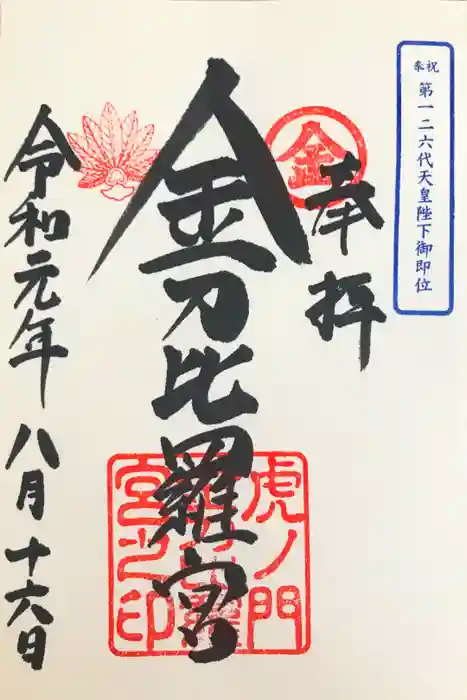 奉祝 第一二六代天皇陛下御即位
奉拝
金
金刀比羅宮
虎ノ門
宮之印
令和元年 八月十六日